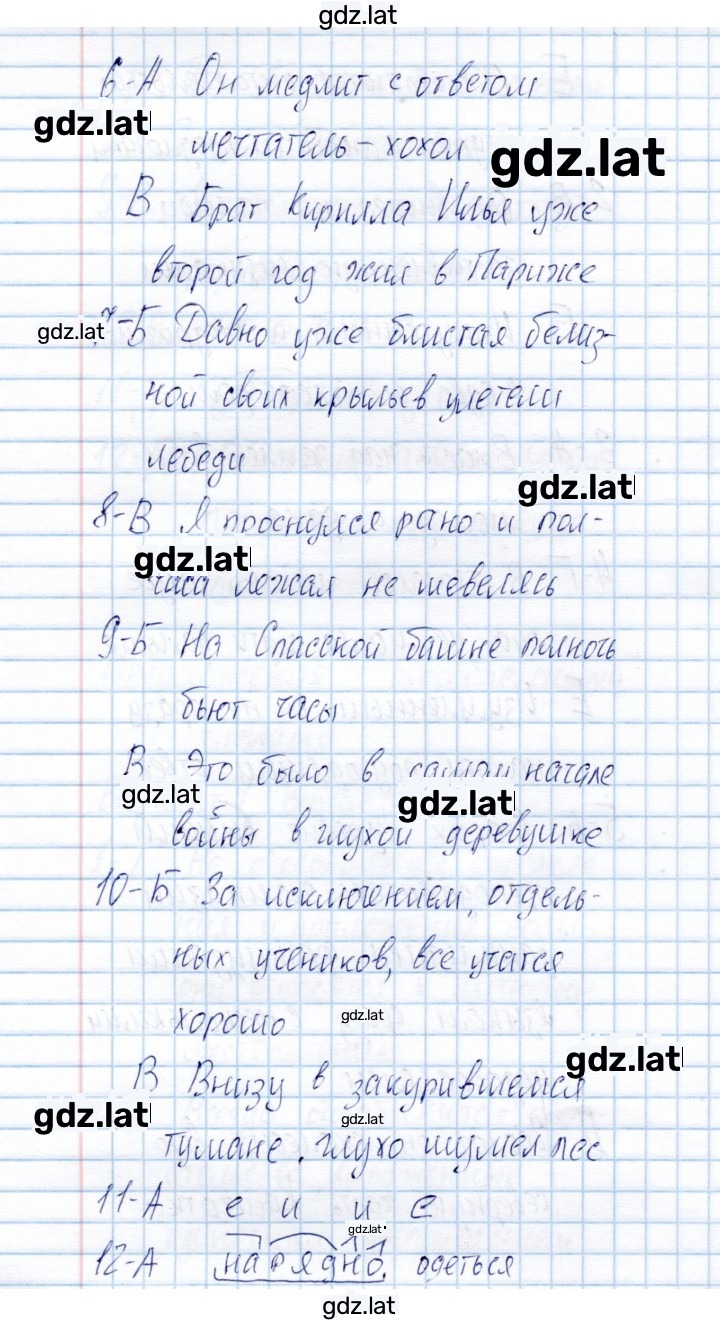 gdz.lat
6-А Он медлит с ответом
gdz.lat
мечтатель-хохол
gdz.lat
В Брат Кирилла Илья уже
второй год жил в Париже
gdz.lat
7-Б Давно уже блистая белиз-
ной своих крыльев улетели
лебеди
gdz.lat
8-В Я проснулся рано и пол-
gdz.lat
часа лежал не шевелясь
9-Б На Спасской башне полночь
бьют часы
В Это было в самом начале
gdz.lat
gdz.lat
войны в глухой деревушке
10-Б За исключением, отдель-
ных учеников, все учатся
хорошо
gdz.lat
gdz.lat
В Внизу в закурившемся
gdz.lat
gdz.lat
тумане, глухо шумел лес
11-А е и и е
gdz.lat
12-А нарядно одеться
gdz.lat